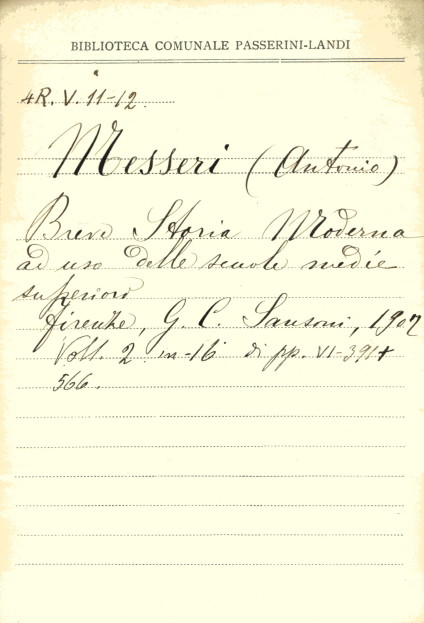 BIBLIOTECA COMUNALE PASSERINI-LANDI
4R. V. 11-12.
Messeri (Antonio)
Breve Storia Moderna
ad uso delle scuole medie
superiori
Firenze, G. C. Sansoni, 1907
Voll. 2 in-16 di pp. VI-391+
566.